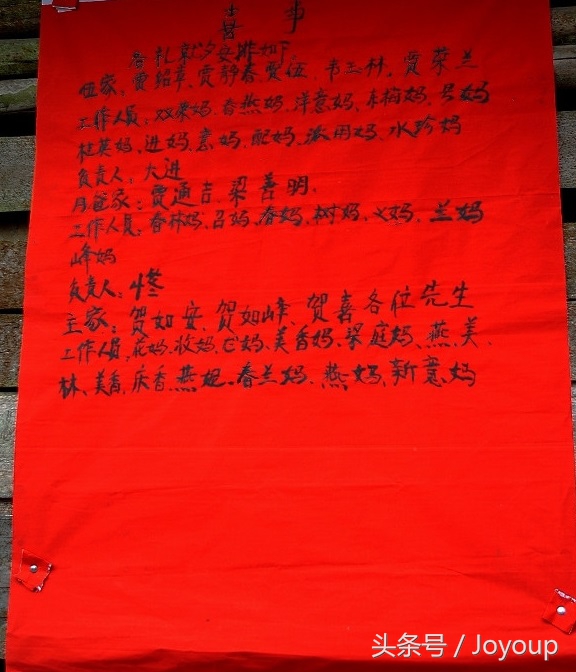 喜 事
扎 安排如下
伍家：贾绍章、贾静春、贾伍、韦工林、贾荣兰
工作人员：双翠妈、香燕妈、洋意妈、木梅妈、吕妈
桂英妈、进妈、意妈、配妈、用妈、水珍妈
负责人：大进
月爸家：贾通吉、梁善明、
工作人员：春林妈、召妈、春妈、树妈、义妈、兰妈
峰妈
负责人：
主家：贺如安、贺如峰、贺喜各位先生
工作人员、花妈、妈、妈、美香妈、梁庭妈、燕、美、
林、美香、庆香、燕姐、春兰妈、燕妈、新意妈
头条号 / Joyoup